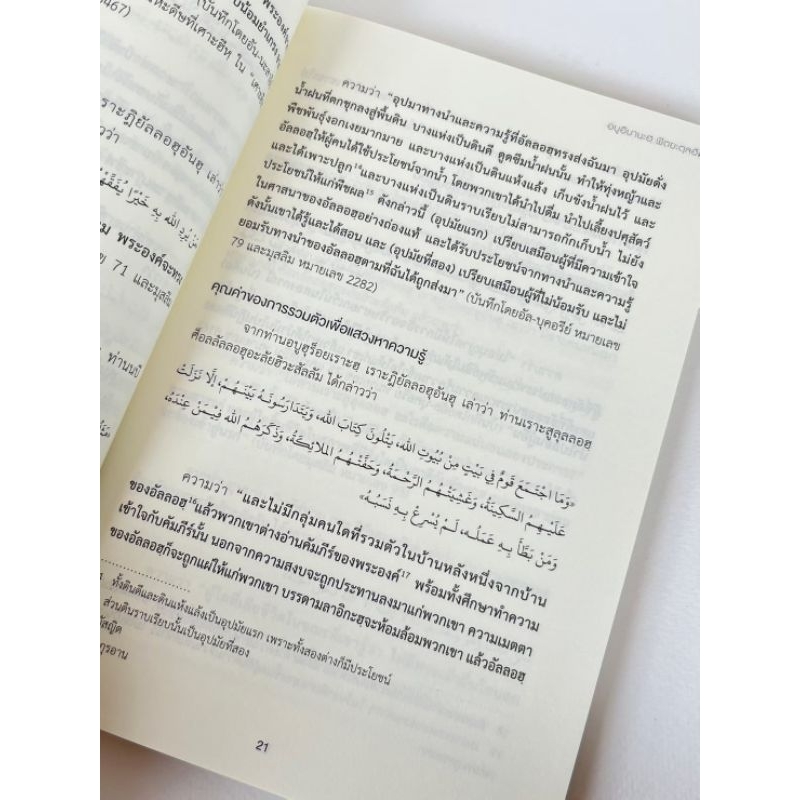 467)
(บันทึกโดยอัน-นะ
เราะฎิยัลลอฮุอันฮุ เล่า
ว่า
مَنْ يُرِدِ الله بِهِ خَيْرًا يُفَقِّهْهُ
พระองค์จะทรง
71 และมุสลิม
ท่านนบี
ความว่า "อุปมาทางนำและความรู้ที่อัลลอฮฺทรงส่งฉันมา อุปมัยดั่ง
น้ำฝนที่ตกชุกลงสู่พื้นดิน บางแห่งเป็นดินดี ดูดซึมน้ำฝนนั้น ทำให้ทุ่งหญ้าและ
พืชพันธุ์งอกเงยมากมาย และบางแห่งเป็นดินแห้งแล้ง เก็บขังน้ำฝนไว้ และ
อัลลอฮฺให้ผู้คนได้ใช้ประโยชน์จากน้ำ โดยพวกเขาได้นำไปดื่ม นำไปเลี้ยงปศุสัตว์
และได้เพาะปลูก¹⁴และบางแห่งเป็นดินราบเรียบไม่สามารถกักเก็บน้ำ ไม่ยัง
ประโยชน์ให้แก่พืชผล¹⁵ ดังกล่าวนี้ (อุปมัยแรก) เปรียบเสมือนผู้ที่มีความเข้าใจ
ในศาสนาของอัลลอฮฺอย่างถ่องแท้ และได้รับประโยชน์จากทางนำและความรู้
ดังนั้นเขาได้รู้และได้สอน และ (อุปมัยที่สอง) เปรียบเสมือนผู้ที่ไม่น้อมรับ และไม่
ยอมรับทางนำของอัลลอฮฺตามที่ฉันได้ถูกส่งมา" (บันทึกโดยอัล-บุคอรีย์ หมายเลข
79 และมุสลิม หมายเลข 2282)
คุณค่าของการรวมตัวเพื่อแสวงหาความรู้
จากท่านอบูฮุร็อยเราะฮฺ เราะฎิยัลลอฮุอันฮุ เล่าว่า ท่านเราะสูลุลลอฮฺ
ศ็อลลัลลอฮุอะลัยฮิวะสัลลัม ได้กล่าวว่า
«وَمَا اجْتَمَعَ قَوْمٌ فِي بَيْتٍ مِنْ بُيُوتِ الله، يَتْلُونَ كِتَابَ الله، وَيَتَدَارَسُونَهُ بَيْنَهُمْ، إِلَّا نَزَلَتْ
عَلَيْهِمُ السَّكِينَةُ، وَغَشِيَتْهُمُ الرَّحْمَةُ، وَحَفَّتْهُمُ الْمَلَائِكَةُ، وَذَكَرَهُمُ الله فِيمَنْ عِنْدَهُ،
وَمَنْ بَطَّأَ بِهِ عَمَلُهُ، لَمْ يُسْرِعْ بِهِ نَسَبُهُ»
ความว่า "และไม่มีกลุ่มคนใดที่รวมตัวในบ้านหลังหนึ่งจากบ้าน
ของอัลลอฮฺ¹⁶แล้วพวกเขาต่างอ่านคัมภีร์ของพระองค์¹⁷ พร้อมทั้งศึกษาทำความ
เข้าใจกับคัมภีร์นั้น นอกจากความสงบจะถูกประทานลงมาแก่พวกเขา ความเมตตา
ของอัลลอฮฺก็จะถูกแผ่ให้แก่พวกเขา บรรดามลาอิกะฮฺจะห้อมล้อมพวกเขา แล้วอัลลอฮฺ
ทั้งดินดีและดินแห้งแล้งเป็นอุปมัยแรก เพราะทั้งสองต่างก็มีประโยชน์
ส่วนดินราบเรียบนั้นเป็นอุปมัยที่สอง
มัสญิด
กุรอาน
21